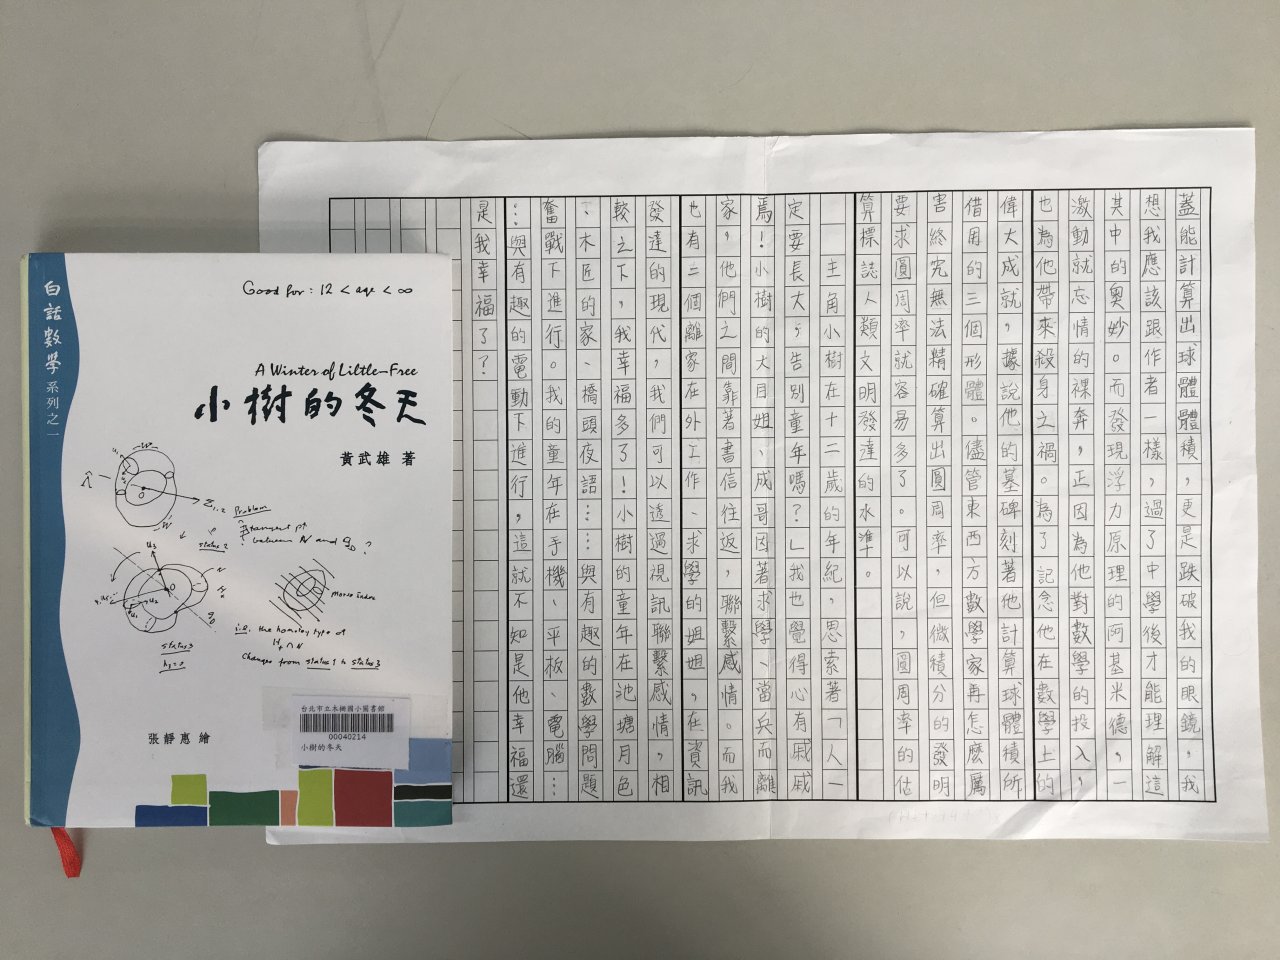 白話數學系列之一
Good for : 12 < age < ∞
A Winter of Little-Free
小樹的冬天
黃武雄 著
Problem
tangent pt
between N and
?
status 2
status 3
Morse index
i.e. the homology type of
Changes from status 1 to status 3
台北市立木柵國小圖書館
00040214
小樹的冬天
張靜惠 繪
蓋能計算出球體體積，更是跌破我的眼鏡，我
想我應該跟作者一樣，過了中學後才能理解這
其中的奧妙。而發現浮力原理的阿基米德，一
激動就忘情的裸奔，正因為他對數學的投入，
也為他帶來殺身之禍。為了記念他在數學上的
偉大成就，據說他的墓碑刻著他計算球體積所
借用的三個形體。儘管東西方數學家再怎麼厲
害終究無法精確算出圓周率，但微積分的發明
要求圓周率就容易多了。可以說，圓周率的估
算標誌人類文明發達的水準。
主角小樹在十二歲的年紀，思索著「人一
定要長大，告別童年嗎？」我也覺得心有戚戚
焉！小樹的大目姐、成哥因著求學、當兵而離
家，他們之間靠著書信往返，聯繫感情。而我
也有二個離家在外工作、求學的姐姐，在資訊
發達的現代，我們可以透過視訊聯繫感情，相
較之下，我幸福多了！小樹的童年在池塘月色
、木匠的家、橋頭夜語……與有趣的數學問題
奮戰下進行。我的童年在手機、平板、電腦…
…與有趣的電動下進行，這就不知是他幸福還
是我幸福了？